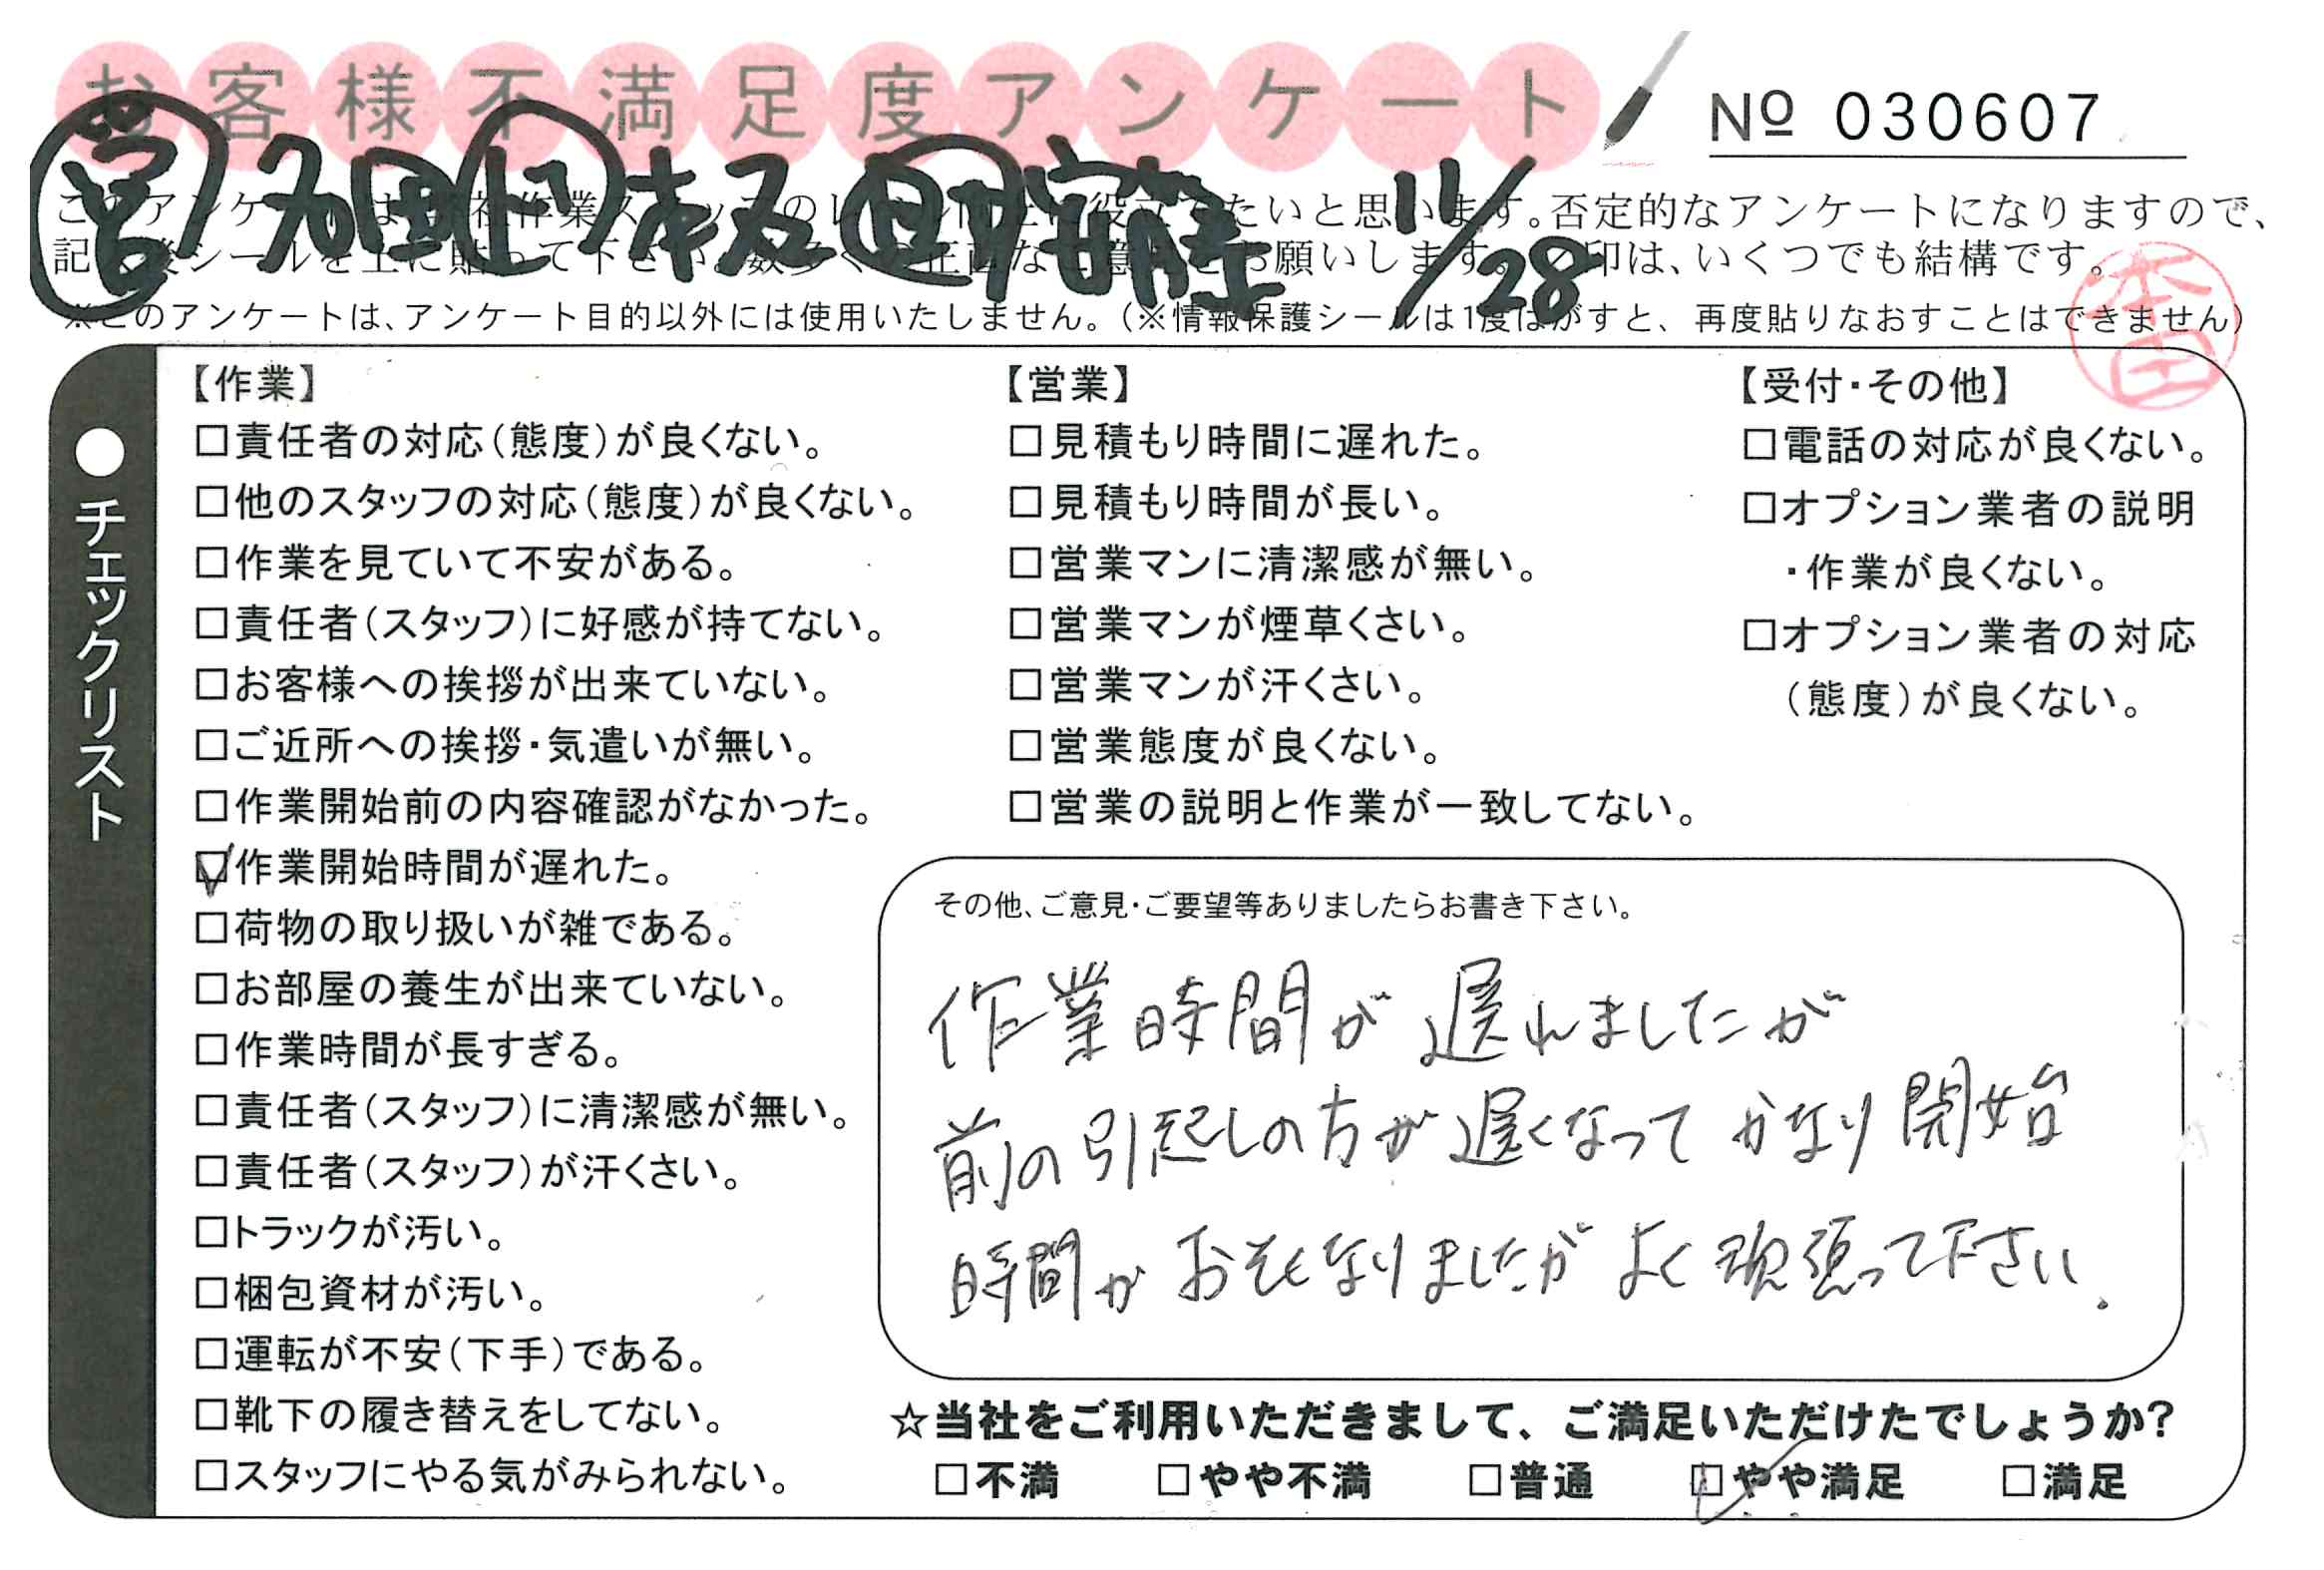 お客様不満足度アンケート
No 030607
営 加田 上 板 安藤 11/28
このアンケートは、
たいと思います。否定的なアンケートになりますので、
お願いします。 印は、いくつでも結構です。
※このアンケートは、アンケート目的以外には使用いたしません。(※情報保護シールは1度はがすと、再度貼りなおすことはできません)
本田
●チェックリスト
【作業】
□責任者の対応(態度)が良くない。
□他のスタッフの対応(態度)が良くない。
□作業を見ていて不安がある。
□責任者(スタッフ)に好感が持てない。
□お客様への挨拶が出来ていない。
□ご近所への挨拶・気遣いが無い。
□作業開始前の内容確認がなかった。
☑作業開始時間が遅れた。
□荷物の取り扱いが雑である。
□お部屋の養生が出来ていない。
□作業時間が長すぎる。
□責任者(スタッフ)に清潔感が無い。
□責任者(スタッフ)が汗くさい。
□トラックが汚い。
□梱包資材が汚い。
□運転が不安(下手)である。
□靴下の履き替えをしてない。
□スタッフにやる気がみられない。
【営業】
□見積もり時間に遅れた。
□見積もり時間が長い。
□営業マンに清潔感が無い。
□営業マンが煙草くさい。
□営業マンが汗くさい。
□営業態度が良くない。
□営業の説明と作業が一致してない。
【受付・その他】
□電話の対応が良くない。
□オプション業者の説明
・作業が良くない。
□オプション業者の対応
(態度)が良くない。
その他、ご意見・ご要望等ありましたらお書き下さい。
作業時間が遅れましたが
前の引起しの方が遅くなってかなり開始
時間がおそくなりましたがよく頑張って下さい.
☆当社をご利用いただきまして、ご満足いただけたでしょうか?
□不満 □やや不満 □普通 ☑やや満足 □満足